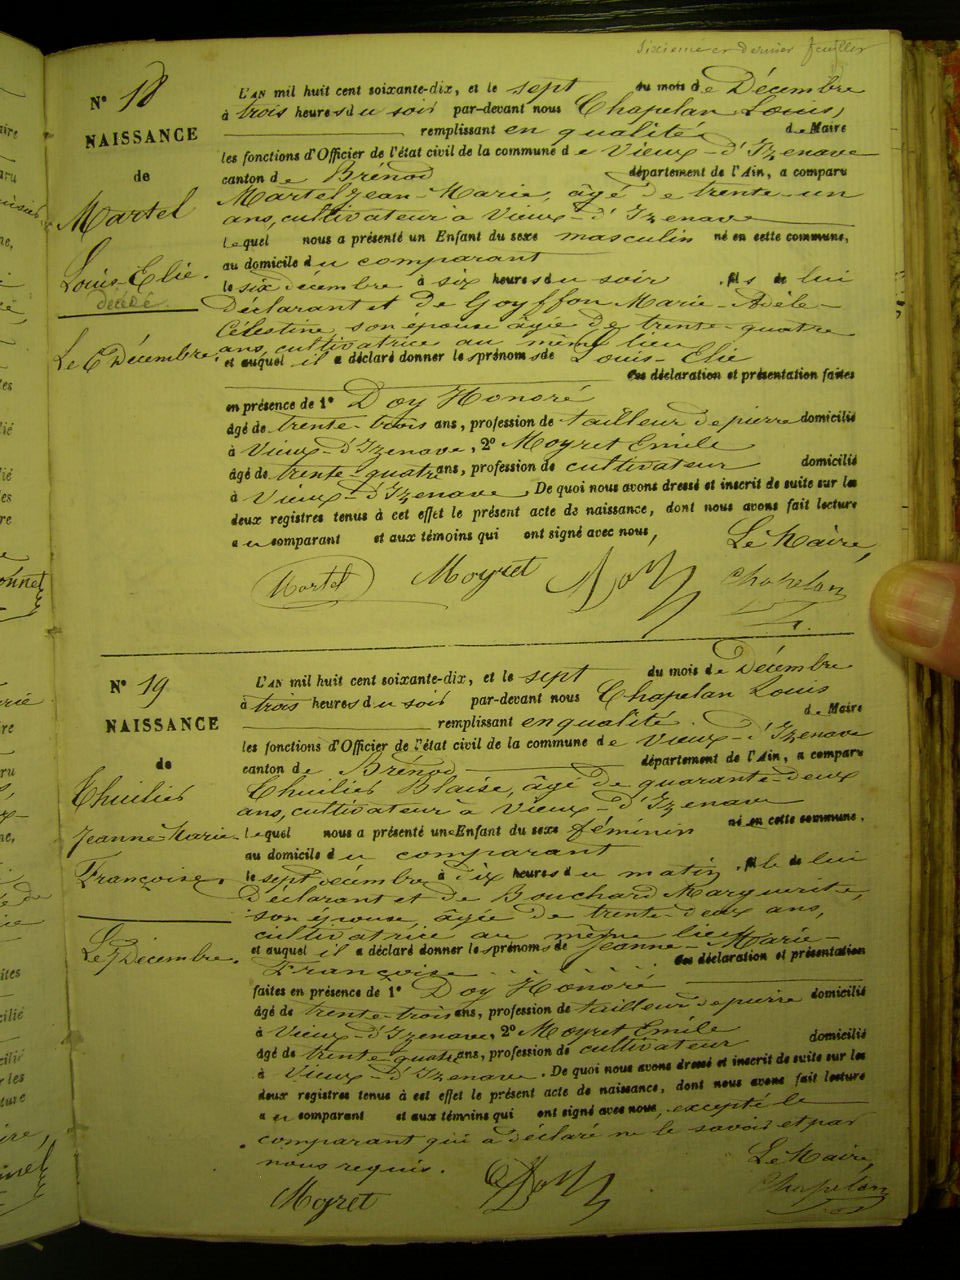 Sixième et dernier feuillet
N° 18
NAISSANCE
de
Martel
Louis-Elie.
décédé
Le 6 Décembre.
L'AN mil huit cent soixante-dix, et le sept du mois de Décembre
à trois heures du soir par-devant nous Chapelan Louis,
remplissant en qualité de Maire
les fonctions d'Officier de l'état civil de la commune de Vieux-d'Izenave
canton de Brénod département de l'Ain, a comparu
Martel Jean-Marie, âgé de trente-un
ans, cultivateur à Vieux-d'Izenave
lequel nous a présenté un Enfant du sexe masculin né en cette commune,
au domicile du comparant
le six décembre à six heures du soir fils de lui
Déclarant et de Goyffon Marie-Adèle-
Célestine, son épouse âgée de trente-quatre
ans, cultivatrice au même lieu
et auquel il a déclaré donner les prénoms de Louis-Elie
Ces déclaration et présentation faites
en présence de 1° Doy Honoré
âgé de trente-trois ans, profession de tailleur de pierre domicilié
à Vieux-d'Izenave, 2° Moyret Emile
âgé de trente-quatre ans, profession de cultivateur domicilié
à Vieux-d'Izenave. De quoi nous avons dressé et inscrit de suite sur les
deux registres tenus à cet effet le présent acte de naissance, dont nous avons fait lecture
au comparant et aux témoins qui ont signé avec nous,
Le Maire,
Martel Moyret Doy Chapelan
N° 19
NAISSANCE
de
Thuilier
Jeanne-Marie-
Françoise.
Le 7 Décembre.
L'AN mil huit cent soixante-dix, et le sept du mois de Décembre
à trois heures du soir par-devant nous Chapelan Louis
remplissant en qualité. de Maire
les fonctions d'Officier de l'état civil de la commune de Vieux-d'Izenave
canton de Brénod département de l'Ain, a comparu
Thuilier Blaise, âgé de quarante-deux
ans, cultivateur à Vieux-d'Izenave
lequel nous a présenté un Enfant du sexe féminin né en cette commune,
au domicile du comparant
le sept décembre à dix heures du matin, fille de lui
Déclarant et de Bouchard Marguerite,
son épouse, âgée de trente-deux ans,
cultivatrice au même lieu
et auquel il a déclaré donner les prénoms de Jeanne-Marie-
Françoise Ces déclaration et présentation
faites en présence de 1° Doy Honoré
âgé de trente-trois ans, profession de tailleur de pierre domicilié
à Vieux-d'Izenave, 2° Moyret Emile
âgé de trente-quatre ans, profession de cultivateur domicilié
à Vieux-d'Izenave. De quoi nous avons dressé et inscrit de suite sur les
deux registres tenus à cet effet le présent acte de naissance, dont nous avons fait lecture
au comparant et aux témoins qui ont signé avec nous, excepté le
comparant qui a déclaré ne le savoir et par
nous requis.
Le Maire,
Moyret Doy Chapelan